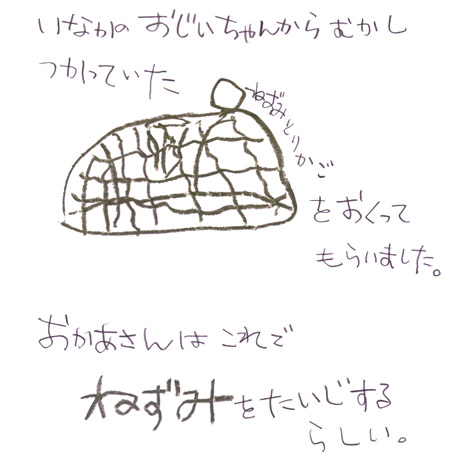 いなかの おじいちゃんから むかし
つかっていた
ねずみとりかご
をおくって
もらいました。
おかあさんは これで
ねずみをたいじする
らしい。